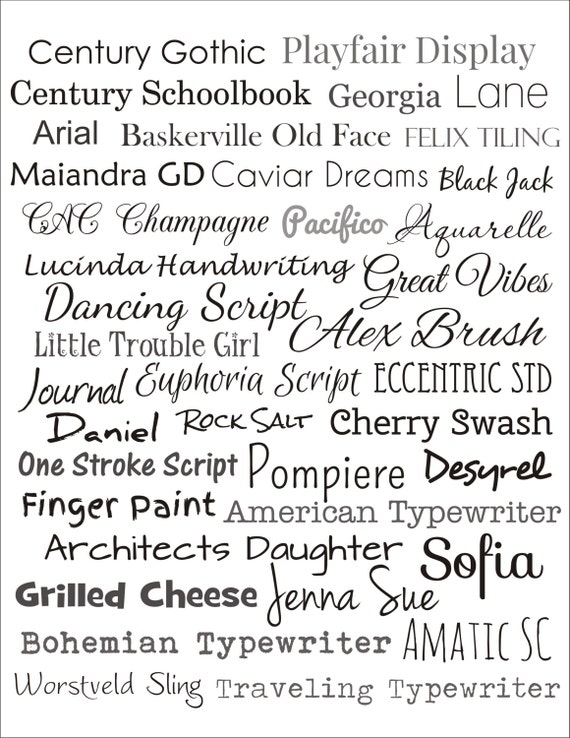 Century Gothic Playfair Display
Century Schoolbook Georgia Lane
Arial Baskerville Old Face FELIX TILING
Maiandra GD Caviar Dreams Black Jack
CAC Champagne Pacifico Aquarelle
Lucinda Handwriting Great Vibes
Dancing Script Alex Brush
Little Trouble Girl
Journal Euphoria Script ECCENTRIC STD
Daniel ROCK SALT Cherry Swash
One Stroke Script Pompiere Desyrel
Finger Paint American Typewriter
Architects Daughter Sofia
Grilled Cheese Jenna Sue
Bohemian Typewriter AMATIC SC
Worstveld Sling Traveling Typewriter